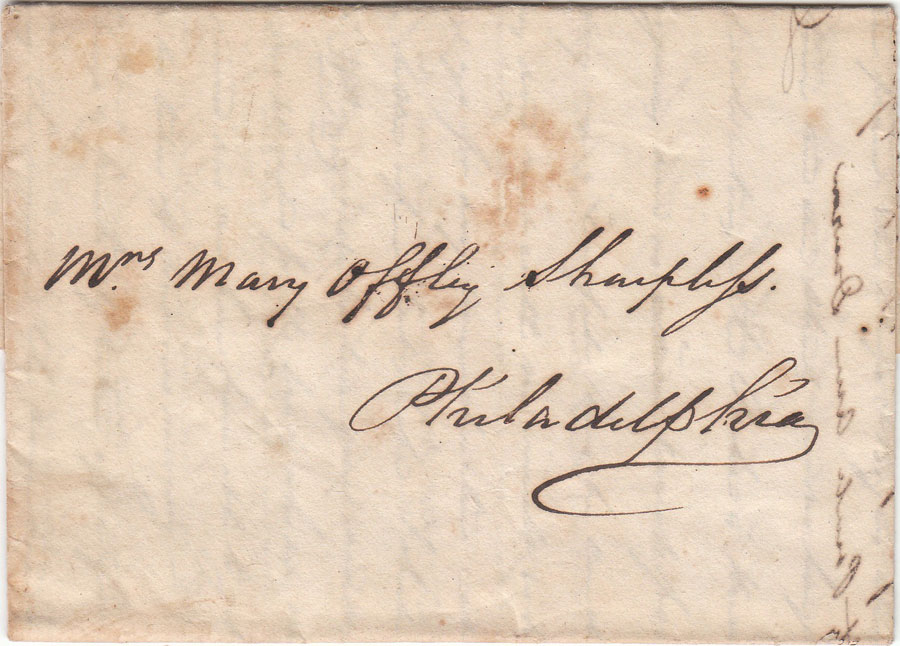 Mrs Mary Offley Sharpless.
Philadelphia